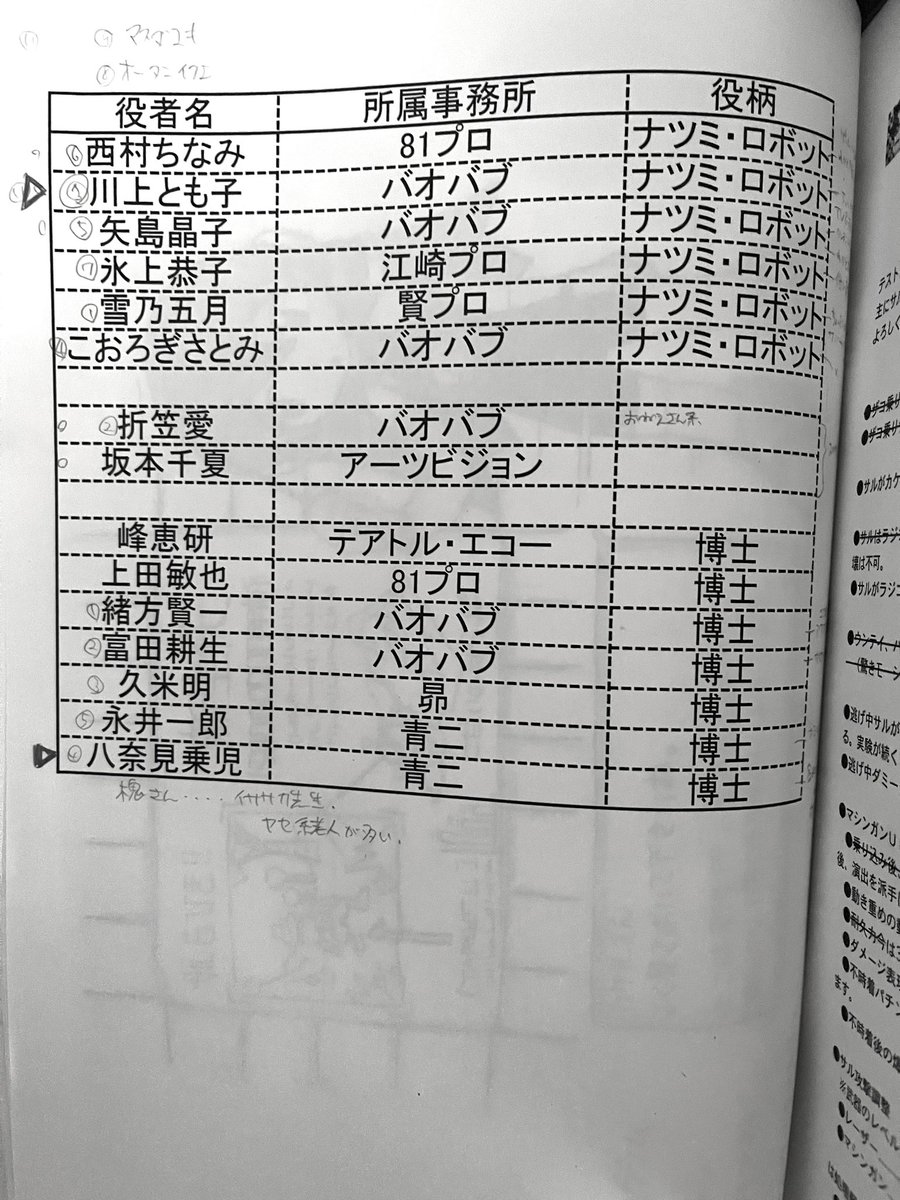 ⑧オーマンイクエ
役者名 所属事務所 役柄
⑥西村ちなみ 81プロ ナツミ・ロボット
川上とも子 バオバブ ナツミ・ロボット
⑤矢島晶子 バオバブ ナツミ・ロボット
⑦氷上恭子 江崎プロ ナツミ・ロボット
①雪乃五月 賢プロ ナツミ・ロボット
④こおろぎさとみ バオバブ ナツミ・ロボット
②折笠愛 バオバブ
坂本千夏 アーツビジョン
峰恵研 テアトル・エコー 博士
上田敏也 81プロ 博士
①緒方賢一 バオバブ 博士
②富田耕生 バオバブ 博士
③久米明 昴 博士
⑤永井一郎 青二 博士
④八奈見乗児 青二 博士
ヤセ系老人が多い。
テスト
主にサル
よろしく
●ザコ乗り
●ザコ乗り
●サルがカケ
●サルはラジ
壊は不可。
●サルがラジコ
●ウンテイ、ハ
(驚きモーシ
●逃げ中サルが
る。実験が続く
●逃げ中ダミー
●マシンガンU
●乗り込み後
後、演出を派手に
●動き重めの
●耐久力今は3
●ダメージ表現
●不時着パチン
ます。
●不時着後の爆
●サル攻撃調整
※武器のレベル
●レーザー
●マシンガン